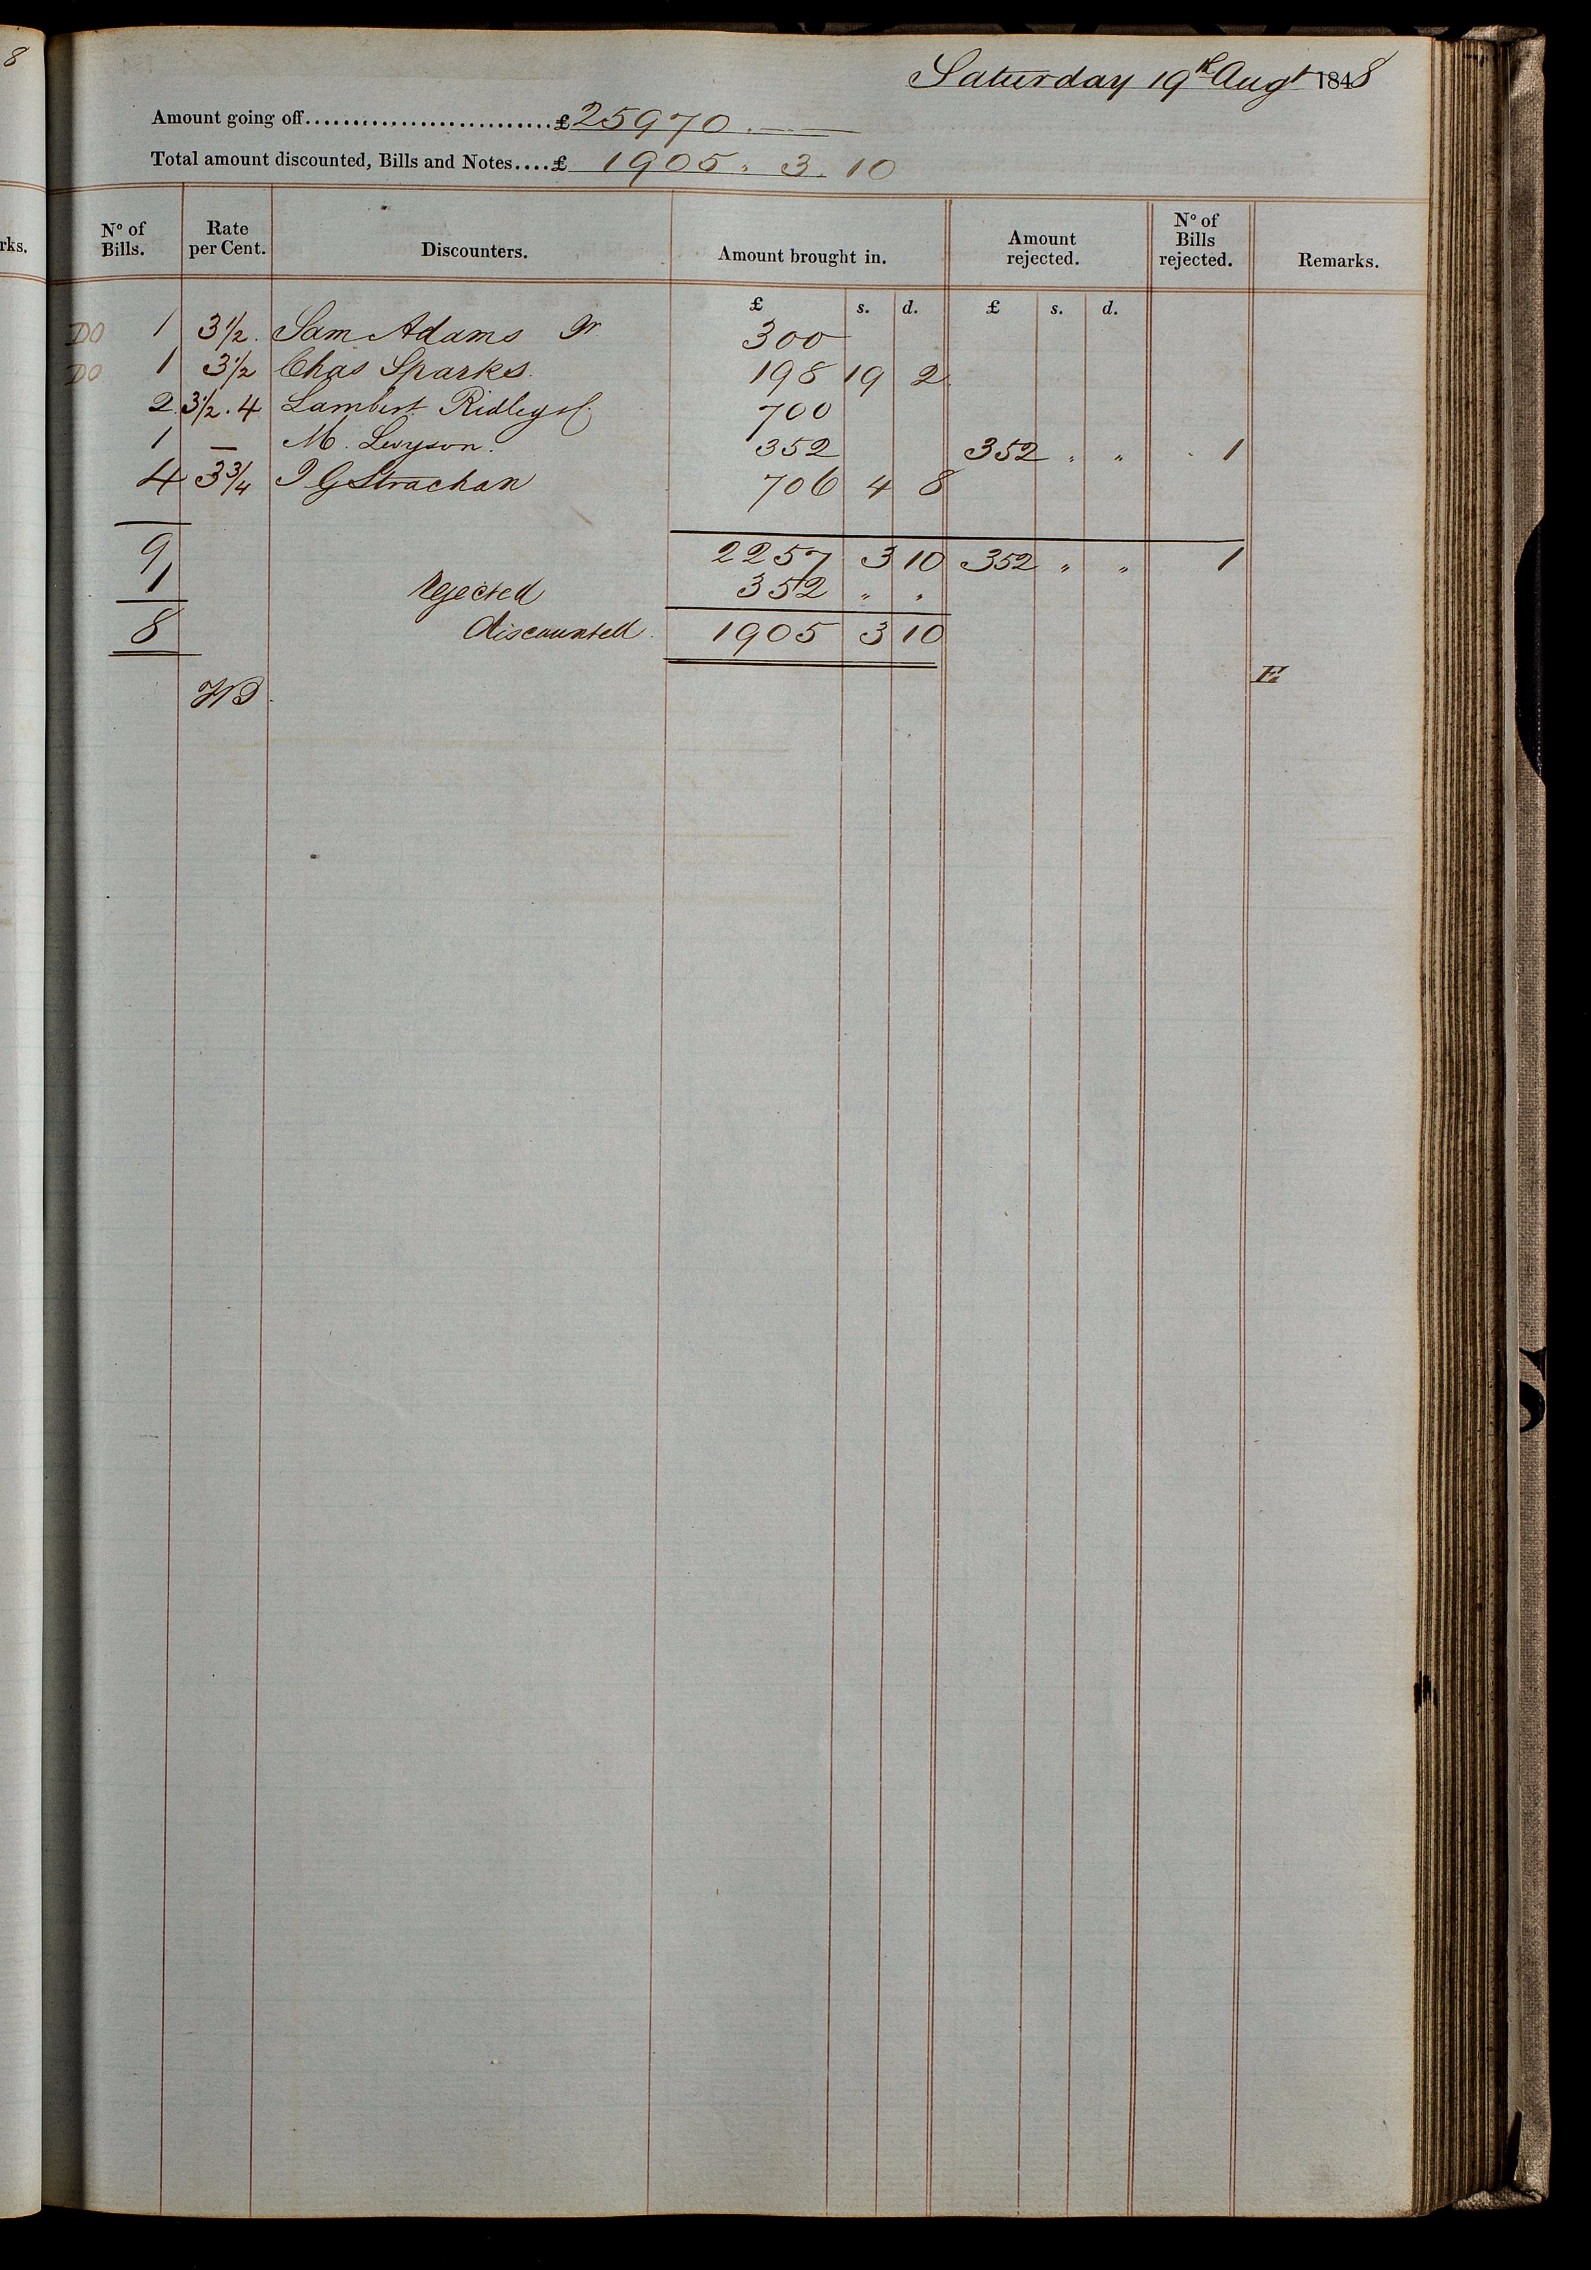 8
rks.
Saturday 19th Augt 1848
Amount going off...........................£25970.——
Total amount discounted, Bills and Notes....£ 1905 " 3. 10
No of Bills. Rate per Cent. Discounters. Amount brought in. Amount rejected. No of Bills rejected. Remarks.
£ s. d. £ s. d.
DO 1 3½. Sam Adams Jr 300
DO 1 3½ Chas Sparks. 198 19 2
2 3½.4 Lambert Ridley 700
1 — M. 352 352 " " 1
4 3¾ J G Strachan 706 4 8
9 2257 3 10 352 " " 1
1 rejected 352 " "
8 discounted. 1905 3 10
E